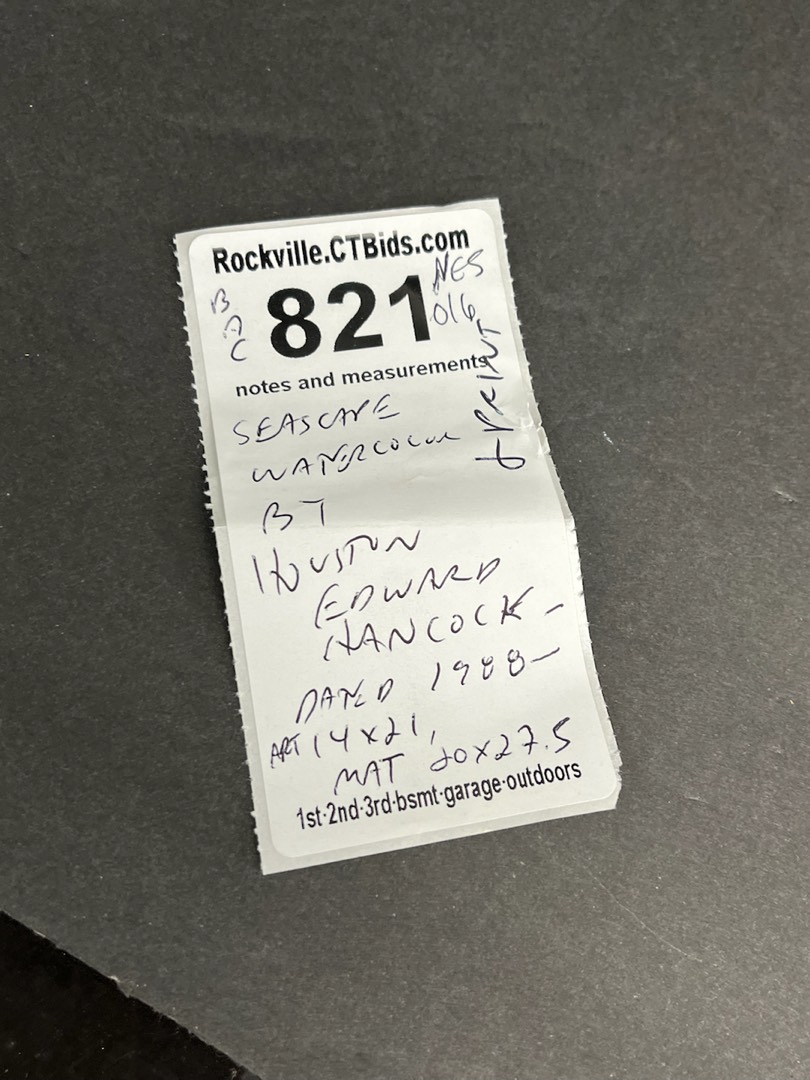 Rockville.CTBids.com
BAC
821
NES
016
notes and measurements
PRINT
SEASCAPE
WATERCOLOR
BY
HOUSTON
EDWARD
HANCOCK -
DATED 1988 -
ART 14 x 21,
MAT 20 x 27.5
1st·2nd·3rd·bsmt·garage·outdoors